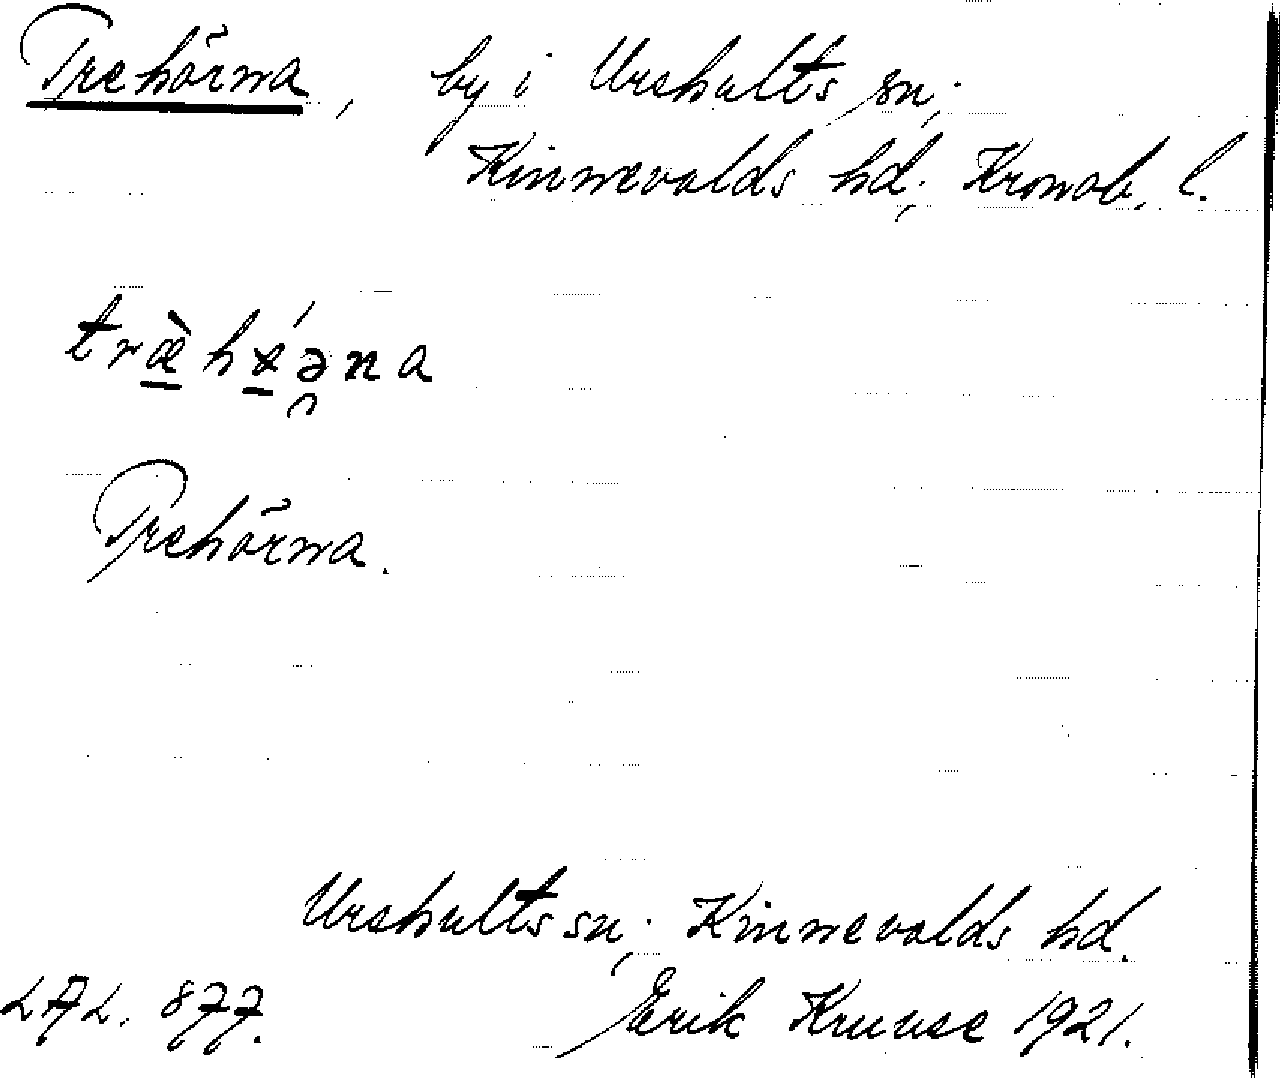 Trehörna, by i Urshults sn;
Kinnevalds hd; Kronob. l.
Trehörna.
Urshults sn; Kinnevalds hd.
LAL. 877. Erik Kruuse 1921.